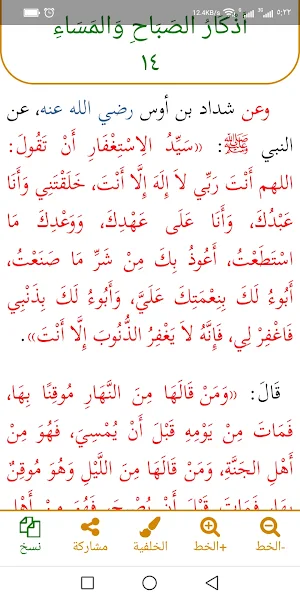 12.4KB/s ٥:٢٢
أَذْكَارُ الصَبَاحِ وَالمَسَاءِ
١٤
وعن شداد بن أوس رضي الله عنه، عن
النبي ﷺ: «سَيِّدُ الاِسْتِغْفَارِ أَنْ تَقُولَ:
اللهم أَنْتَ رَبِّي لاَ إِلَهَ إِلَّا أَنْتَ، خَلَقْتَنِي وَأَنَا
عَبْدُكَ، وَأَنَا عَلَى عَهْدِكَ، وَوَعْدِكَ مَا
اسْتَطَعْتُ، أَعُوذُ بِكَ مِنْ شَرِّ مَا صَنَعْتُ،
أَبُوءُ لَكَ بِنِعْمَتِكَ عَلَيَّ، وَأَبُوءُ لَكَ بِذَنْبِي
فَاغْفِرْ لِي، فَإِنَّهُ لاَ يَغْفِرُ الذُّنُوبَ إِلَّا أَنْتَ».
قَالَ: «وَمَنْ قَالَهَا مِنَ النَّهَارِ مُوقِنًا بِهَا،
فَمَاتَ مِنْ يَوْمِهِ قَبْلَ أَنْ يُمْسِيَ، فَهُوَ مِنْ
أَهْلِ الجَنَّةِ، وَمَنْ قَالَهَا مِنَ اللَّيْلِ وَهُوَ مُوقِنٌ
بِهَا، فَمَاتَ قَبْلَ أَنْ يُصْبِحَ فَهُوَ مِنْ أَهْلِ
-الخط +الخط الخلفية مشاركة نسخ